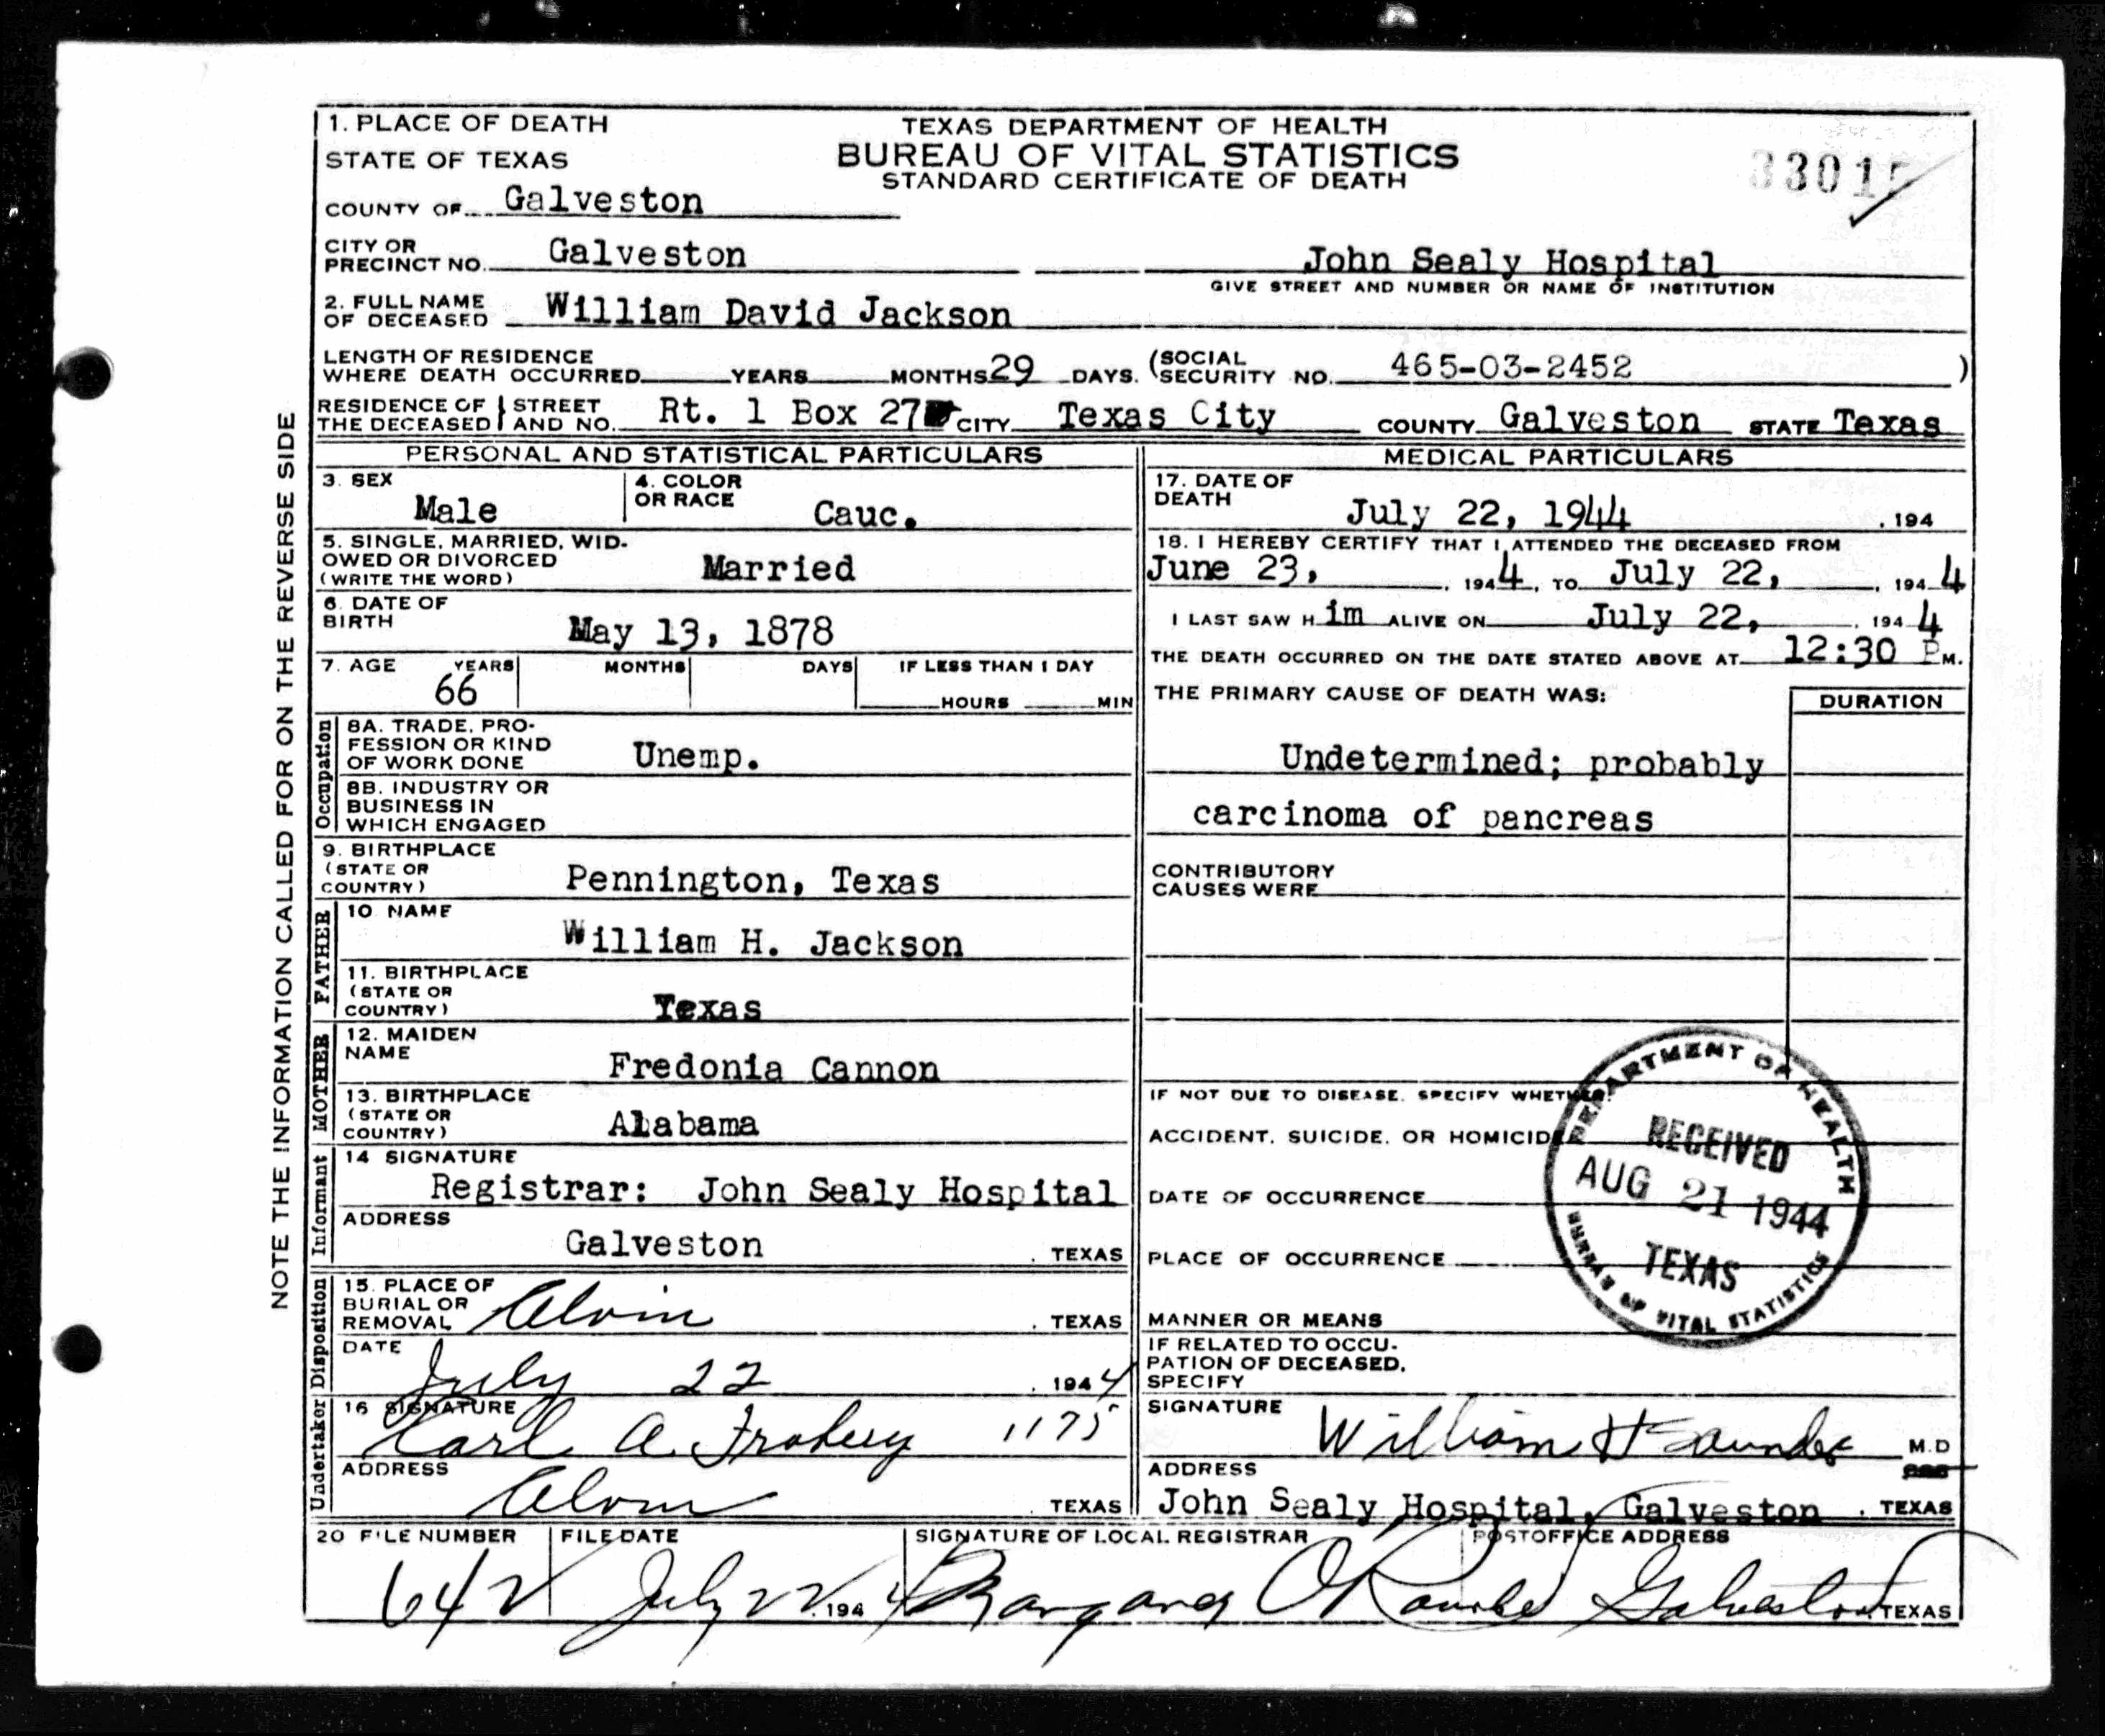 NOTE THE INFORMATION CALLED FOR ON THE REVERSE SIDE
1. PLACE OF DEATH
STATE OF TEXAS
COUNTY OF Galveston
TEXAS DEPARTMENT OF HEALTH
BUREAU OF VITAL STATISTICS
STANDARD CERTIFICATE OF DEATH
CITY OR PRECINCT NO. Galveston
John Sealy Hospital
GIVE STREET AND NUMBER OR NAME OF INSTITUTION
2. FULL NAME OF DECEASED William David Jackson
LENGTH OF RESIDENCE WHERE DEATH OCCURRED YEARS MONTHS 29 DAYS. (SOCIAL SECURITY NO. 465-03-2452 )
RESIDENCE OF THE DECEASED STREET AND NO. Rt. 1 Box 27 CITY Texas City COUNTY Galveston STATE Texas
PERSONAL AND STATISTICAL PARTICULARS
3. SEX Male
4. COLOR OR RACE Cauc.
5. SINGLE, MARRIED, WID-
OWED OR DIVORCED
(WRITE THE WORD) Married
6. DATE OF BIRTH May 13, 1878
7. AGE YEARS 66 MONTHS DAYS IF LESS THAN 1 DAY
HOURS MIN
Occupation
8A. TRADE, PRO-
FESSION OR KIND
OF WORK DONE Unemp.
8B. INDUSTRY OR
BUSINESS IN
WHICH ENGAGED
9. BIRTHPLACE
(STATE OR
COUNTRY) Pennington, Texas
FATHER
10. NAME William H. Jackson
11. BIRTHPLACE
(STATE OR
COUNTRY) Texas
MOTHER
12. MAIDEN
NAME Fredonia Cannon
13. BIRTHPLACE
(STATE OR
COUNTRY) Alabama
Informant
14 SIGNATURE
Registrar: John Sealy Hospital
ADDRESS
Galveston . TEXAS
Disposition
15. PLACE OF
BURIAL OR
REMOVAL Alvin . TEXAS
DATE July 22 . 1944
Undertaker
16 SIGNATURE
Carl A. 1175
ADDRESS
Alvin . TEXAS
MEDICAL PARTICULARS
17. DATE OF
DEATH July 22, 1944 . 194
18. I HEREBY CERTIFY THAT I ATTENDED THE DECEASED FROM
June 23, . 1944, TO July 22, . 1944
I LAST SAW H im ALIVE ON July 22, . 1944
THE DEATH OCCURRED ON THE DATE STATED ABOVE AT 12:30 P M.
THE PRIMARY CAUSE OF DEATH WAS: DURATION
Undetermined; probably
carcinoma of pancreas
CONTRIBUTORY
CAUSES WERE
IF NOT DUE TO DISEASE, SPECIFY WHETHER:
ACCIDENT, SUICIDE, OR HOMICIDE
DATE OF OCCURRENCE
PLACE OF OCCURRENCE
MANNER OR MEANS
DEPARTMENT OF HEALTH
RECEIVED
AUG 21 1944
TEXAS
BUREAU OF VITAL STATISTICS
IF RELATED TO OCCU-
PATION OF DECEASED,
SPECIFY
SIGNATURE William H Saunders M.D
ADDRESS
John Sealy Hospital, Galveston . TEXAS
20 FILE NUMBER FILE DATE SIGNATURE OF LOCAL REGISTRAR POSTOFFICE ADDRESS
642 July 22 . 1944 O'Rourke Galveston TEXAS